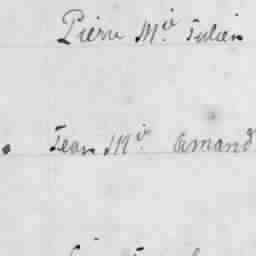 Pierre M.ie Julien
Jean M.ie Amand